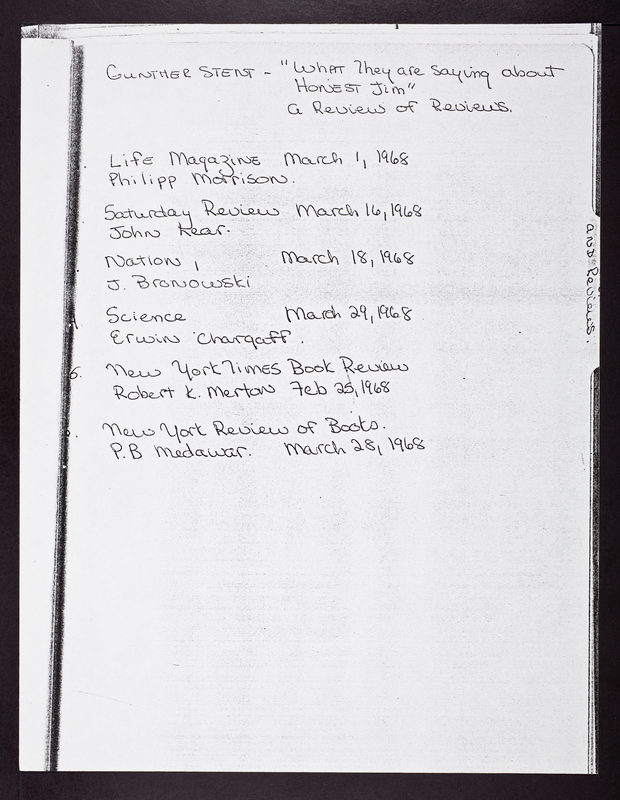 GUNTHER STENT - "WHAT They are saying about
HONEST Jim"
a Review of Reviews.
Life Magazine March 1, 1968
Philipp Morrison.
Saturday Review March 16, 1968
John Lear.
Nation, March 18, 1968
J. Bronowski
Science March 29, 1968
Erwin Chargaff.
5. New York Times Book Review
Robert K. Merton Feb 25, 1968
New York Review of Books.
P.B Medawar. March 28, 1968
and Reviews.